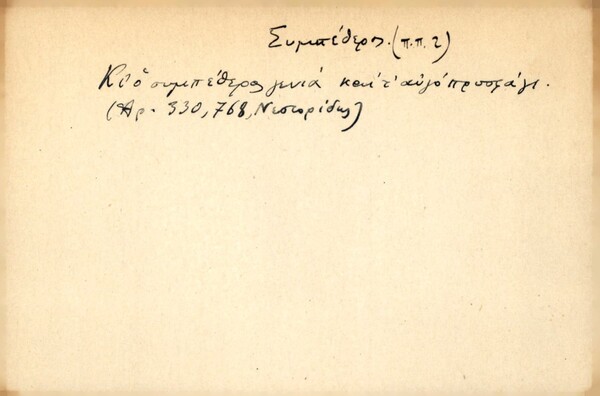 Συμπέθερος. (π.π. 2)
Κι ὁ συμπέθερος γενιά καί τ' αὐγό προσφάγι.
(Ἀρ. 330, 768, Νεστορίδης)